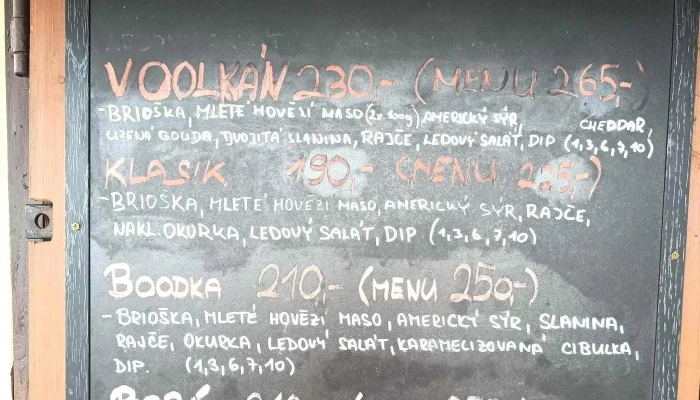 VOOLKÁN 230,- (MENU 265,-)
-BRIOŠKA, MLETÉ HOVĚZÍ MASO (2x 100g), AMERICKÝ SÝR, CHEDDAR,
UZENÁ GOUDA, DVOJITÁ SLANINA, RAJČE, LEDOVÝ SALÁT, DIP (1,3,6,7,10)
KLASIK 190,- (MENU ,-)
-BRIOŠKA, MLETÉ HOVĚZÍ MASO, AMERICKÝ SÝR, RAJČE,
NAKL. OKURKA, LEDOVÝ SALÁT, DIP (1,3,6,7,10)
BOODKA 210,- (MENU 250,-)
-BRIOŠKA, MLETÉ HOVĚZÍ MASO, AMERICKÝ SÝR, SLANINA,
RAJČE, OKURKA, LEDOVÝ SALÁT, KARAMELIZOVANÁ CIBULKA,
DIP. (1,3,6,7,10)